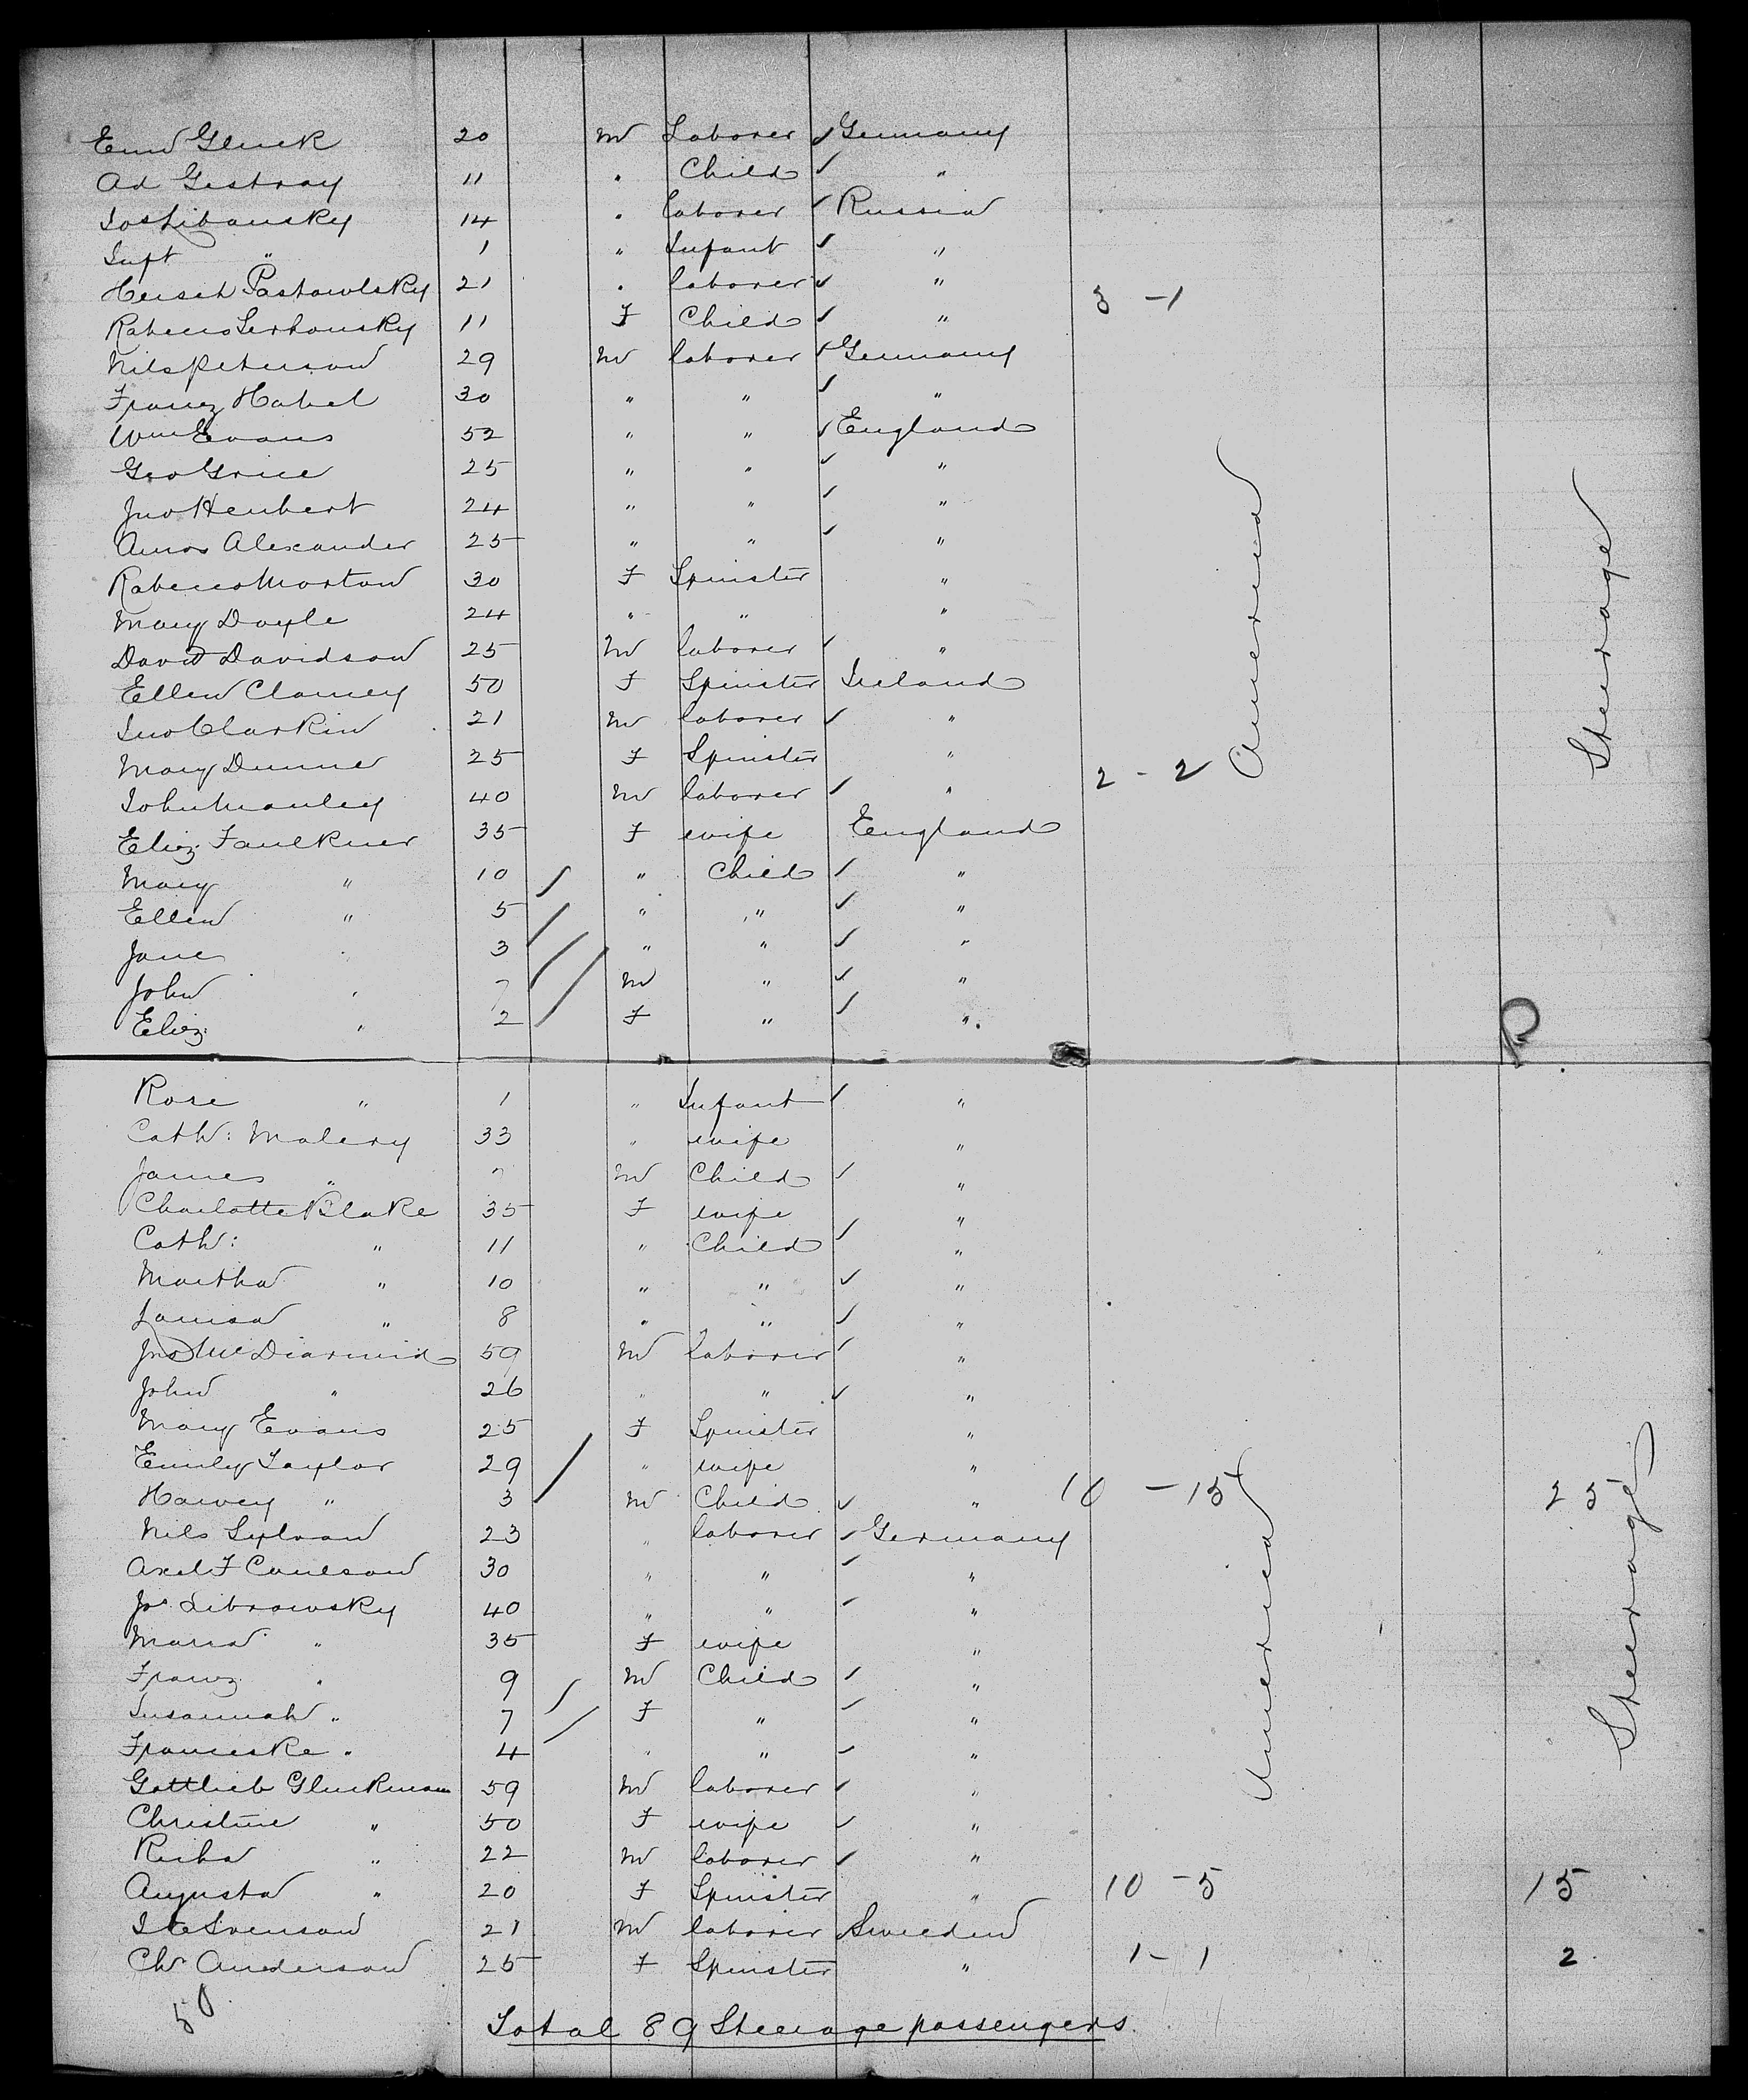 Emil Gluck 20 m Laborer ✓ Germany
Ad Gestray 11 " Child ✓ "
Jos Libansky 14 " laborer ✓ Russia
Inft " 1 " Infant ✓ "
Hersch Pastowlsky 21 " laborer ✓ "
3 - 1
Rabecca Lerhousky 11 F Child ✓ "
Nils Peterson 29 m laborer ✓ Germany
Franz Habel 30 " " ✓ "
Wm Evans 52 " " ✓ England
Geo Grice 25 " " ✓ "
Jno Heubert 24 " " ✓ "
Amos Alexander 25 " " ✓ "
Rabecca Morton 30 F Spinster "
Mary Doyle 24 " " "
David Davidson 25 m laborer ✓ "
Ellen Clancey 50 F Spinster Ireland
Jno Clarkin 21 m laborer ✓ "
Mary Dunne 25 F Spinster "
2 - 2 America Steerage
John Manley 40 m laborer ✓ "
Eliz Faulkner 35 F wife England
Mary " 10 / " Child ✓ "
Ellen " 5 / " " ✓ "
Jane " 3 / " " ✓ "
John " 7 / m " ✓ "
Eliz: " 2 F " ✓ "
Rose " 1 " Infant ✓ "
Cath: Malery 33 " wife "
James " m Child ✓ "
Charlotte Blake 35 F wife "
Cath: " 11 " Child ✓ "
Martha " 10 " " ✓ "
Louisa " 8 " " ✓ "
Jno McDiarmid 59 m laborer ✓ "
John " 26 " " ✓ "
Mary Evans 25 F Spinster "
Emily Taylor 29 " wife "
Harvey " 3 / m Child ✓ " 10 - 15 25
Nils Sylvan 23 " laborer ✓ Germany
Axel F Caulson 30 " " ✓ "
Jos Librowsky 40 " " ✓ "
Maria " 35 F wife "
America Steerage
Franz " 9 m Child ✓ "
Susannah " 7 / F " ✓ "
Franceske " 4 / " " ✓ "
Gottlieb Gluckman 59 m laborer ✓ "
Christine " 50 F wife ✓ "
Richd " 22 m laborer ✓ "
Augusta " 20 F Spinster " 10 - 5 15
Svenson 21 m laborer Sweeden
Ch Anderson 25 F Spinster " 1 - 1 2
50
Total 89 Steerage passengers.